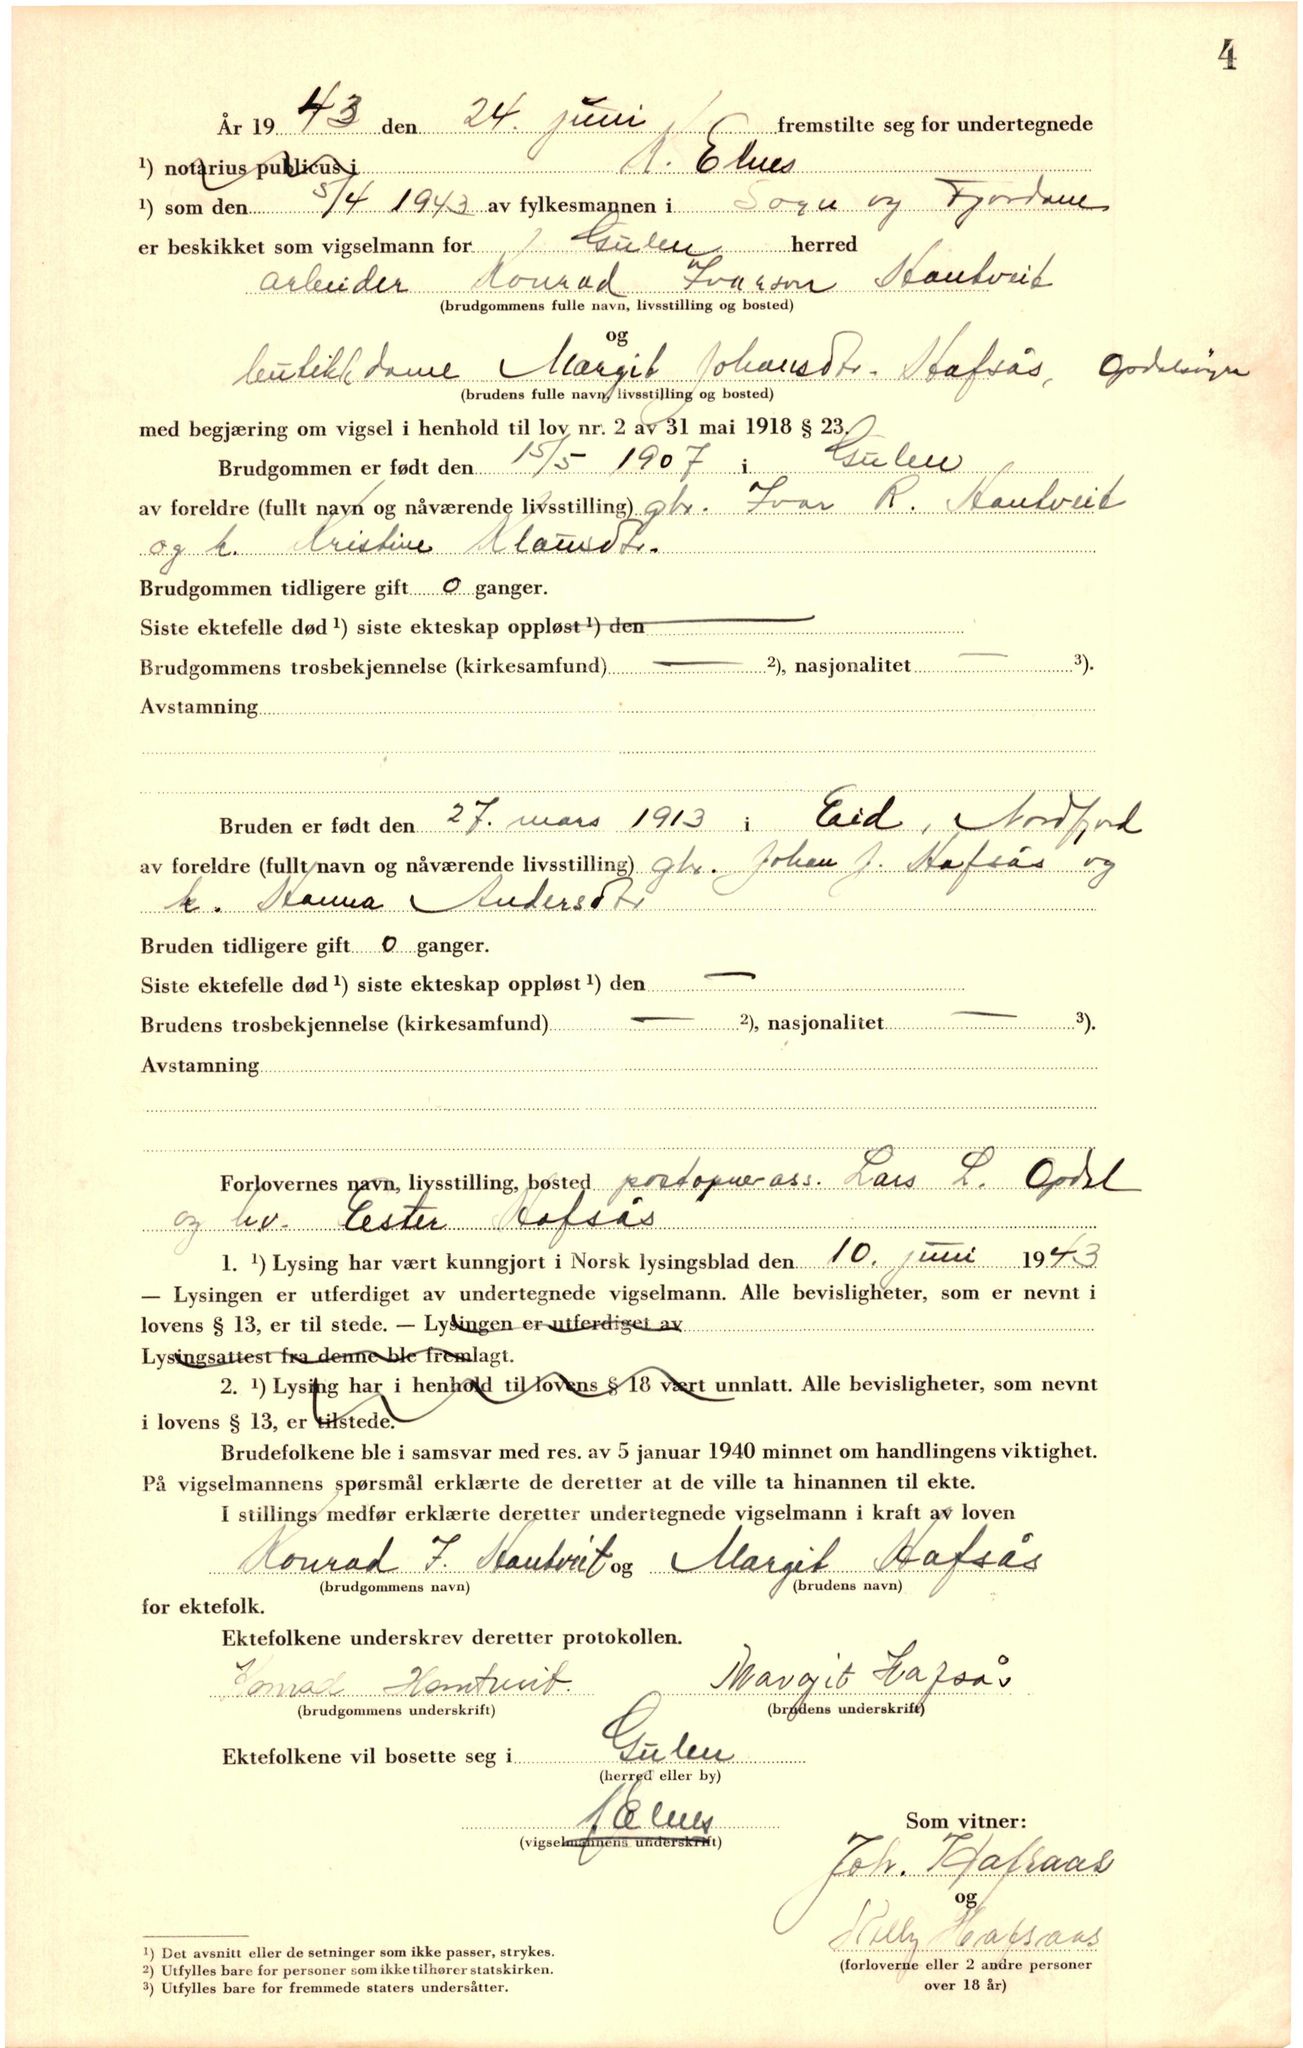 4
År 1943 den 24. juni fremstilte seg for undertegnede
¹) notarius publicus i Elnes
¹) som den 5/4 1943 av fylkesmannen i Sogn og Fjordane
er beskikket som vigselmann for Gulen herred
arbeider Konrad Ivarson Hantveit
(brudgommens fulle navn, livsstilling og bosted)
og
butikkdame Margit Johansdtr. Hafsås,
(brudens fulle navn, livsstilling og bosted)
med begjæring om vigsel i henhold til lov nr. 2 av 31 mai 1918 § 23.
Brudgommen er født den 15/5 1907 i Gulen
av foreldre (fullt navn og nåværende livsstilling) gbr. Ivar R. Hantveit
og k. Kristine Klausdtr.
Brudgommen tidligere gift 0 ganger.
Siste ektefelle død ¹) siste ekteskap oppløst ¹) den
Brudgommens trosbekjennelse (kirkesamfund) — ²), nasjonalitet — ³).
Avstamning
Bruden er født den 27. mars 1913 i Eid, Nordfjord
av foreldre (fullt navn og nåværende livsstilling) gbr. Johan J. Hafsås og
k. Hanna Andersdtr
Bruden tidligere gift 0 ganger.
Siste ektefelle død ¹) siste ekteskap oppløst ¹) den —
Brudens trosbekjennelse (kirkesamfund) — ²), nasjonalitet — ³).
Avstamning
Forlovernes navn, livsstilling, bosted postopner ass. Lars L. Opdal
og hv. Ester Hafsås
1. ¹) Lysing har vært kunngjort i Norsk lysingsblad den 10. juni 1943
— Lysingen er utferdiget av undertegnede vigselmann. Alle bevisligheter, som er nevnt i
lovens § 13, er til stede. — Lysingen er utferdiget av
Lysingsattest fra denne ble fremlagt.
2. ¹) Lysing har i henhold til lovens § 18 vært unnlatt. Alle bevisligheter, som nevnt
i lovens § 13, er tilstede.
Brudefolkene ble i samsvar med res. av 5 januar 1940 minnet om handlingens viktighet.
På vigselmannens spørsmål erklærte de deretter at de ville ta hinannen til ekte.
I stillings medfør erklærte deretter undertegnede vigselmann i kraft av loven
Konrad I. Hantveit og Margit Hafsås
(brudgommens navn) (brudens navn)
for ektefolk.
Ektefolkene underskrev deretter protokollen.
Konrad Hantveit. Margit Hafsås
(brudgommens underskrift) (brudens underskrift)
Ektefolkene vil bosette seg i Gulen
(herred eller by)
Elnes
(vigselmannens underskrift)
Som vitner:
Joh. Hafsaas
og
Hafsaas
(forloverne eller 2 andre personer
over 18 år)
¹) Det avsnitt eller de setninger som ikke passer, strykes.
²) Utfylles bare for personer som ikke tilhører statskirken.
³) Utfylles bare for fremmede staters undersåtter.